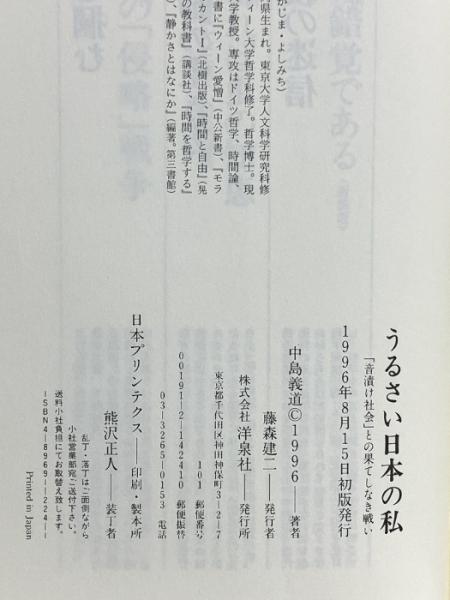 かじま・よしみち）
県生まれ。東京大学人文科学研究科修
ィーン大学哲学科修了。哲学博士。現
大学教授。専攻はドイツ哲学、時間論、
書に『ウィーン愛憎』（中公新書）、『モラ
カントⅠ』（北樹出版）、『時間と自由』（晃
の教科書』（講談社）、『時間を哲学する』
）、『静かさとはなにか』（編著。第三書館）
うるさい日本の私
「音漬け社会」との果てしなき戦い
1996年8月15日初版発行
中島義道©1996――著者
藤森建二――発行者
株式会社 洋泉社――発行所
東京都千代田区神田神保町3―2―7
101 郵便番号
00191―2―142410 郵便振替
03―3265―0153 電話
日本プリンテクス――印刷・製本所
熊沢正人――装丁者
乱丁・落丁はご面倒ながら
小社営業部宛ご送付下さい。
送料小社負担にてお取替え致します。
ISBN4―8969―224―
Printed in Japan